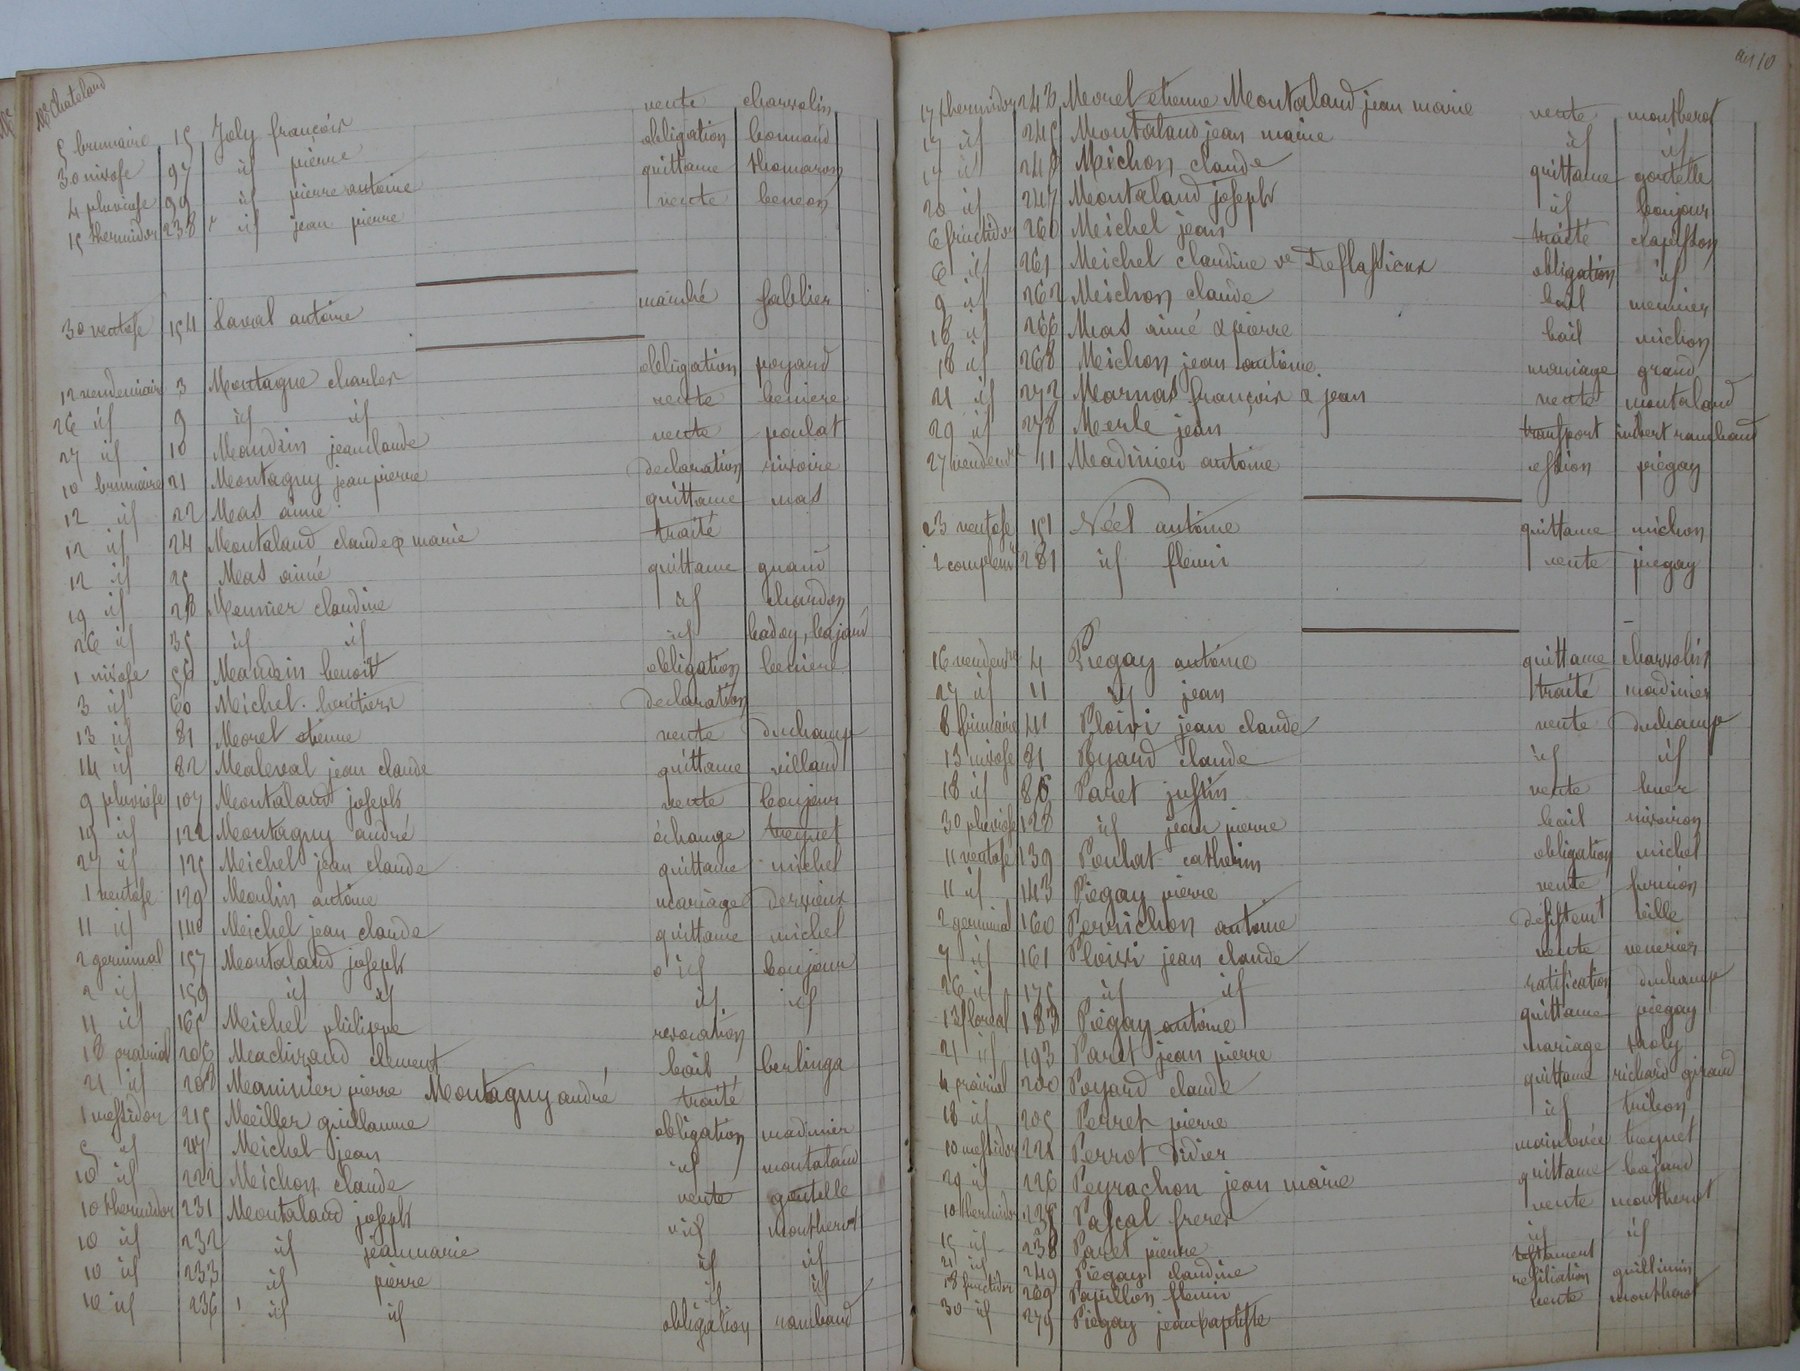 Me Chateland
5 brumaire 15 Joly françois vente charvolin
30 nivose 97 id pierre obligation bonnand
4 pluviose 99 id pierre antoine quittame thomaron
15 thermidor 238 id jean pierre vente bencon
30 ventose 154 Laval antoine marché
12 vendemiaire 3 Montagne charles obligation poyard
26 id 9 id id vente beniere
27 id 10 Mandrin jean claude vente poulat
10 brumaire 21 Montagny jean pierre declaration rivoire
12 id 22 Mas aimé quittame mas
12 id 24 Montaland claude & marie traité
12 id 25 Mas aimé quittame
19 id 28 Mounier claudine id chardon
26 id 35 id id id badoy, bajard
1 nivose 56 benoit obligation beniere
3 id 60 Michel heritiers declaration
13 id 81 Morel etienne vente duchamp
14 id 82 Maleval jean claude quittame villard
9 pluviose 107 Montaland joseph vente bonjour
19 id 122 Montagny andré échange treynet
27 id 125 Michel jean claude quittame michel
1 ventose 129 Moulin antoine mariage dervieux
11 id 140 Michel jean claude quittame michel
2 germinal 157 Montaland joseph id bonjour
2 id 159 id id id id
11 id 165 Michel philippe revocation
18 prairial 206 Machirand clement bail berlinga
21 id 208 pierre Montagny andré traité
1 messidor 215 Meiller guillaume obligation madinier
5 id 217 Michel jean id montaland
10 id 222 Michon claude vente goutelle
10 thermidor 231 Montaland joseph id montherot
10 id 232 id jean marie id id
10 id 233 id pierre id id
10 id 236 id id obligation rambaud
an 10
17 thermidor 243 Morel etienne Montaland jean marie vente montherot
17 id 245 Montaland jean marie id id
17 id 248 Michon claude quittame goutelle
20 id 247 Montaland joseph id bonjour
6 fructidor 260 Michel jean traité chapiston
6 id 261 Michel claudine ve Deflassieux obligation id
9 id 262 Michon claude bail meunier
18 id 266 Mas aimé & pierre bail michon
18 id 268 Michon jean antoine mariage grand
21 id 272 Marnas françois & jean vente montaland
29 id 278 Merle jean transport imbert rambaud
27 vendemre 11 Madinieu antoine piégay
23 ventose 151 Néel antoine quittame michon
2 complemre 281 id fleuri vente piegay
16 vendemre 4 Piegay antoine quittame charvolin
27 id 11 id jean traité madinier
8 frimaire 41 Ploivi jean claude vente duchamp
13 nivose 81 Poyard claude id id
18 id 86 Paret justin vente
30 pluviose 128 id jean pierre bail
11 ventose 139 Poulat catherin obligation michel
11 id 143 Piégay pierre vente furnion
2 germinal 160 Perrichon antoine désistemt bille
7 id 161 Ploivi jean claude vente venerier
26 id 175 id id ratification duchamp
12 floreal 183 Piégay antoine quittame piegay
21 id 193 Paret jean pierre mariage tholy
4 prairial 200 Poyard claude quittame richard giraud
18 id 205 Perret pierre id
10 messidor 221 Perrot Didier mainlevée treynet
29 id 226 Peyrachon jean marie quittame bajard
10 thermidor Pascal freres vente montherot
15 id 238 Paret pierre id id
21 id 249 Piegay claudine testament
18 fructidor 269 Papillon fleuri resiliation guillimin
30 id 279 Piegay jean baptiste vente montherot